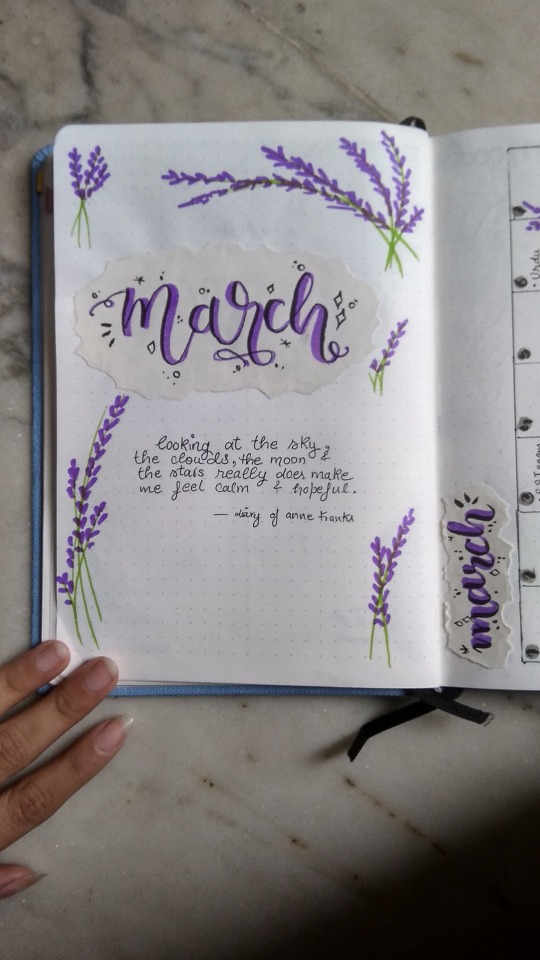 march
looking at the sky,
the clouds, the moon &
the stars really does make
me feel calm & hopeful.
— diary of anne frank
march
Urdu